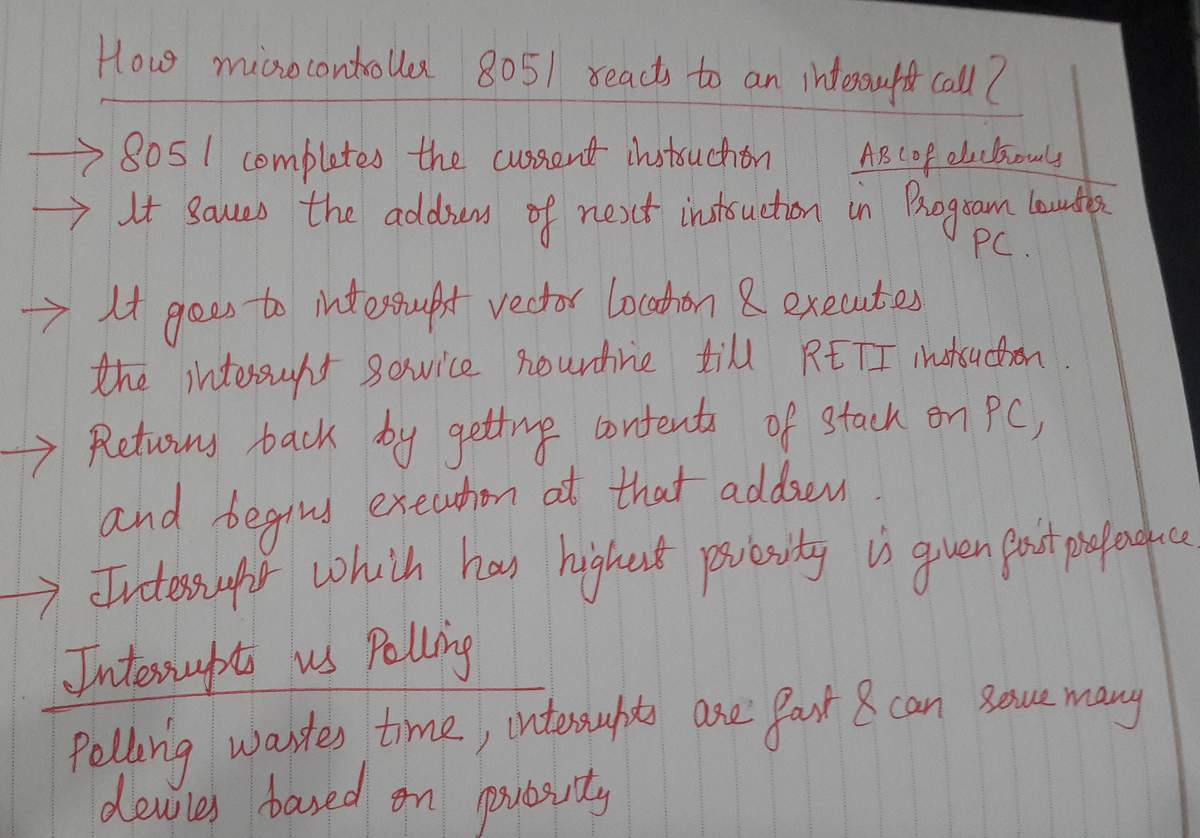 How microcontroller 8051 reacts to an interrupt call?
→ 8051 completes the current instruction
ABC of electronics
→ It saves the address of next instruction in Program Counter
PC.
→ It goes to interrupt vector location & executes
the interrupt service rountine till RETI instruction.
→ Returns back by getting contents of stack on PC,
and begins execution at that address.
→ Interrupt which has highest priority is given first preference.
Interrupts vs Polling
Polling wastes time, interrupts are fast & can serve many
devices based on priority